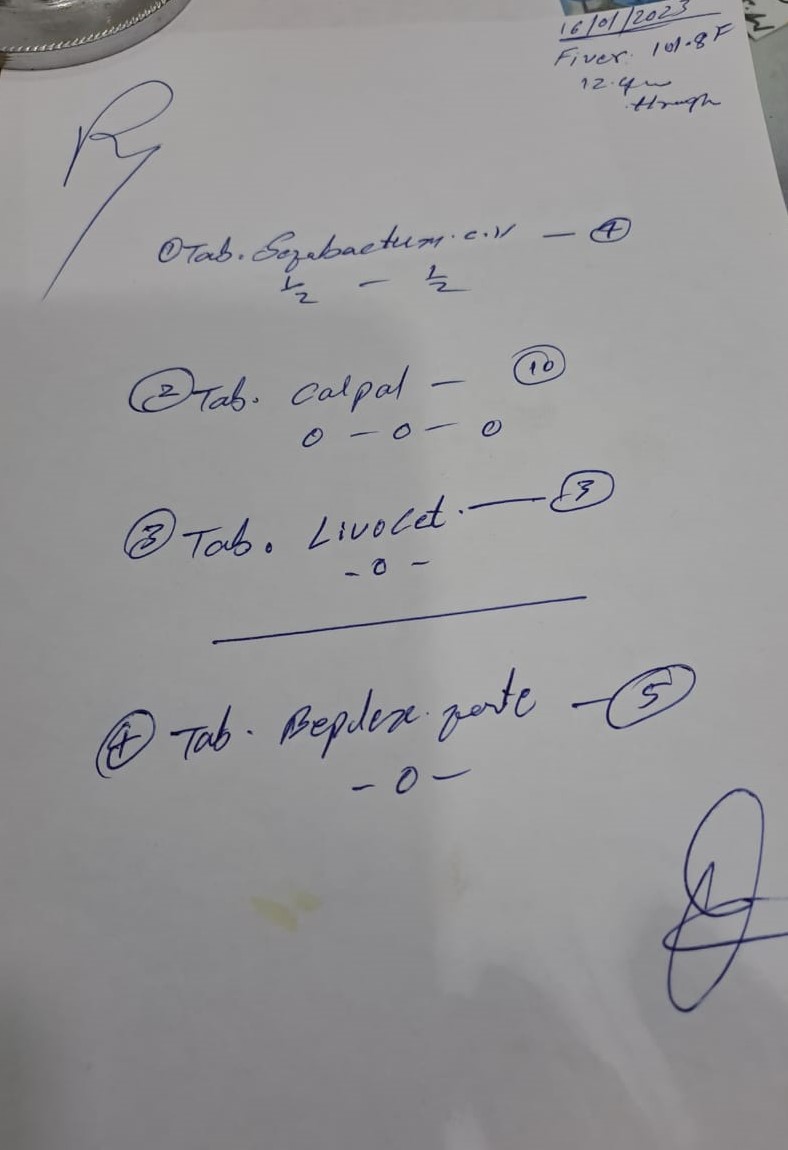 16/01/2023
Fiver: 101.8F
R
① Tab. — ④
½ — ½
② Tab. Calpal — ⑩
0 — 0 — 0
③ Tab. Livocet. — ③
- 0 -
④ Tab. Beplex forte — ⑤
- 0 -